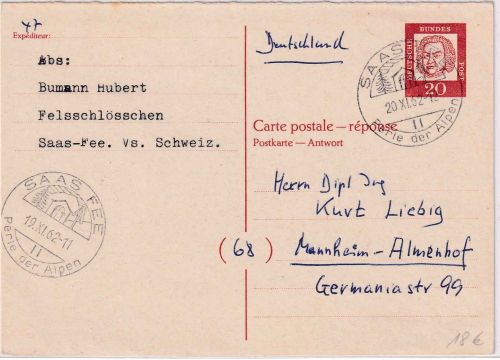 47
Expéditeur:
Abs:
Bumann Hubert
Felsschlösschen
Saas-Fee. Vs. Schweiz.
Deutschland
DEUTSCHE BUNDESPOST
20
SAAS FEE
20.XI.62-11
Perle der Alpen
Carte postale — réponse
Postkarte — Antwort
Herrn Dipl Ing
Kurt Liebig
(68) Mannheim-Almenhof
Germaniastr 99
SAAS FEE
19.XI.62-11
Perle der Alpen
18€